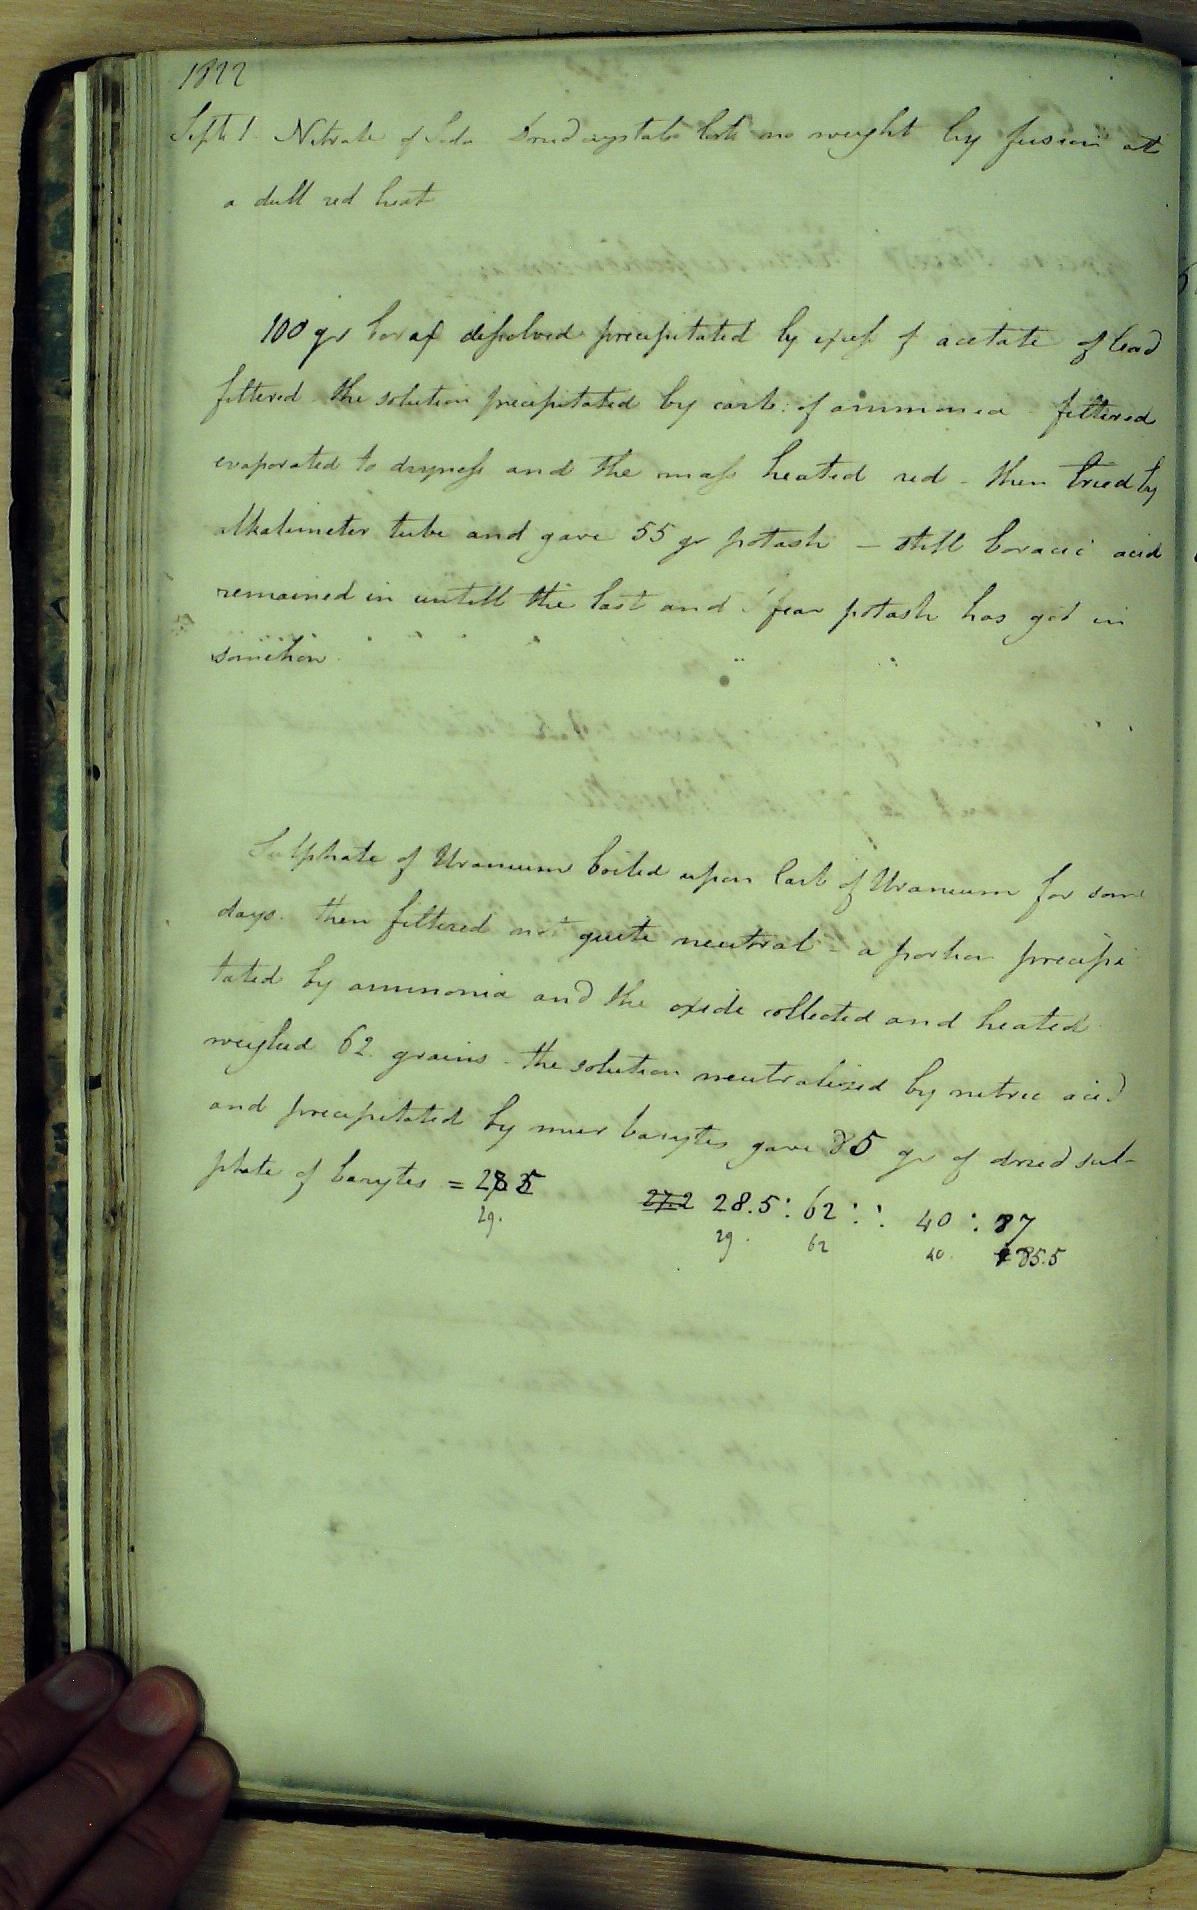 1822
Septr 1. Nitrate of Soda Dried crystals lost no weight by fusion at
a dull red heat
100 gr borax dissolved precipitated by excess of acetate of lead
filtered the solution precipitated by carb: of ammonia filtered
evaporated to dryness and the mass heated red - then tried by
alkalimeter tube and gave 55 gr potash - still boracic acid
remained in untill the last and I fear potash has got in
somehow.
Sulphate of Uranium boiled upon Carb of Uranium for some
days. then filtered not quite neutral - a portion precipi
tated by ammonia and the oxide collected and heated
weighed 62 grains - the solution neutralized by nitric acid
and precipitated by mur barytes gave 85 gr of dried sul-
phate of barytes = 28.5 27.2 28.5 : 62 :: 40 : 87
29. 29. 62 40. 85.5